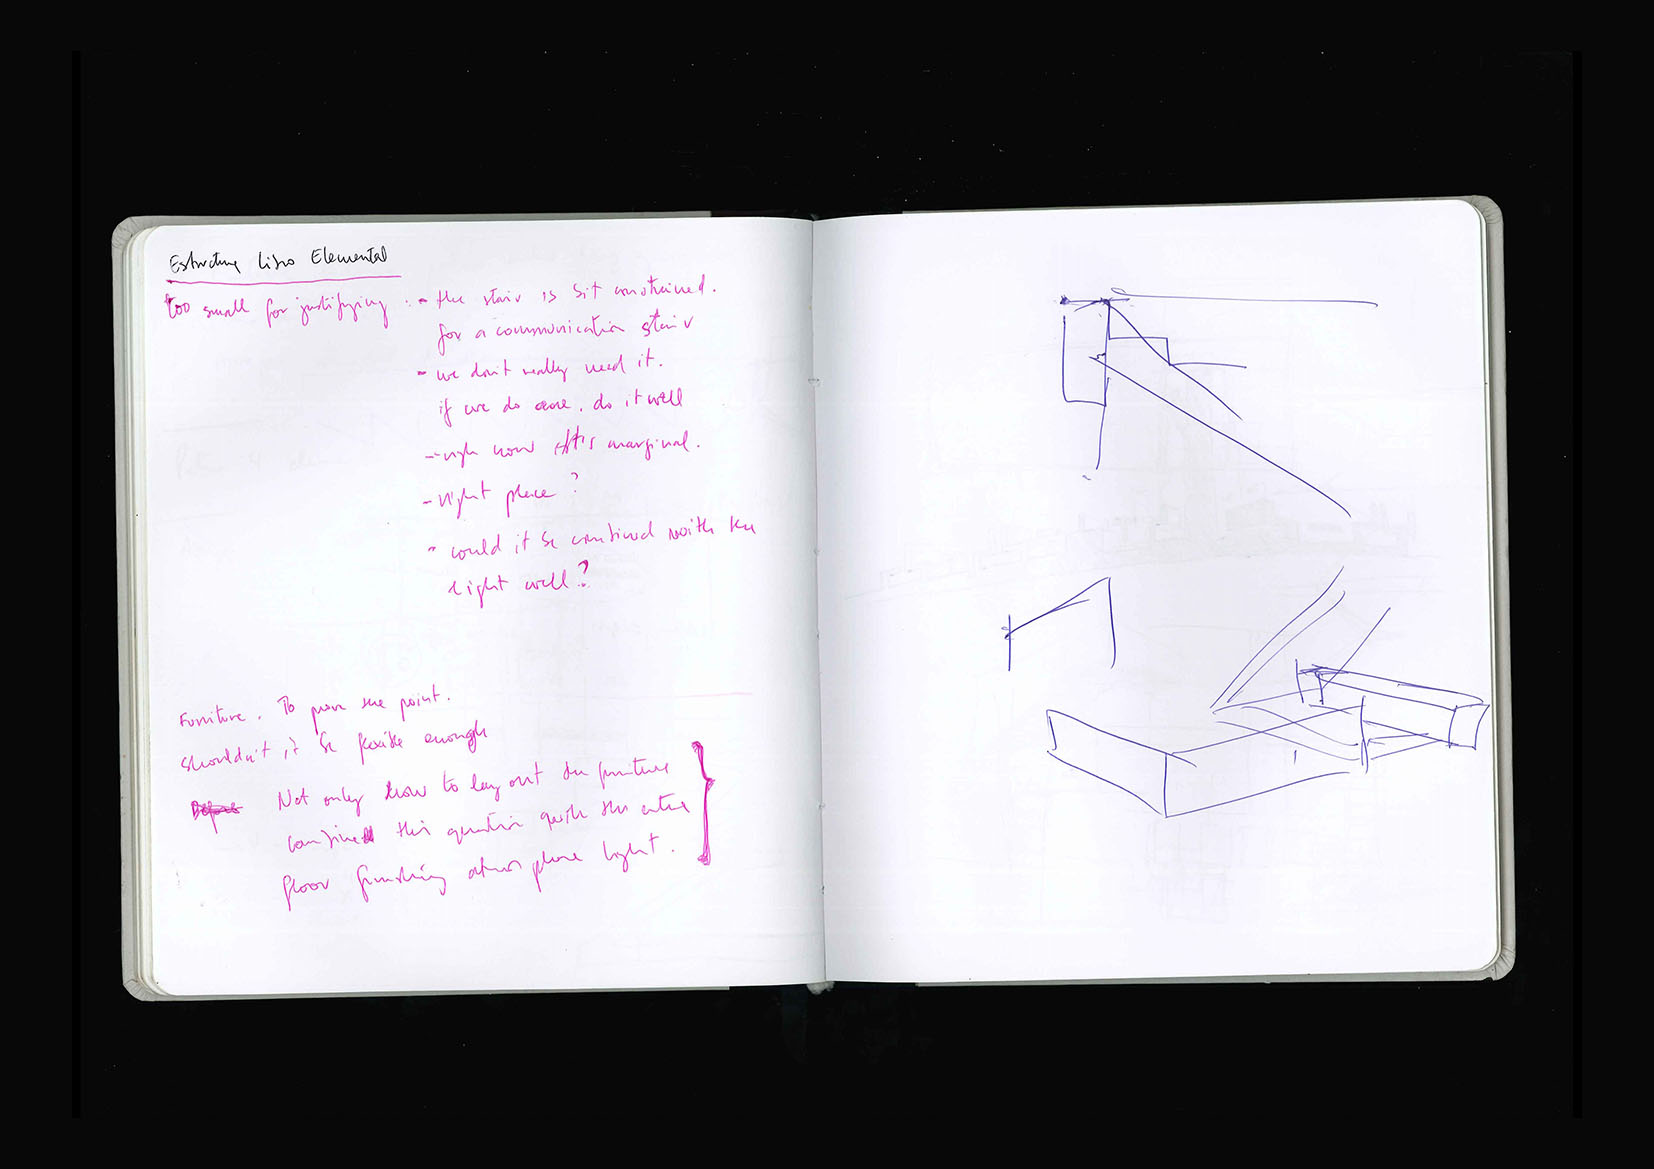 Estructura Libro Elemental
too small for justifying : - the stair is bit constrained.
for a communication stair
- we don't really need it.
if we do one, do it well
- right now it's marginal.
- right place ?
- could it be combined with the
light well ?
Furniture. To prove the point.
shouldn't it be flexible enough
Not only how to lay out the furniture
combined this question with the entire
floor furnishing atmosphere light.